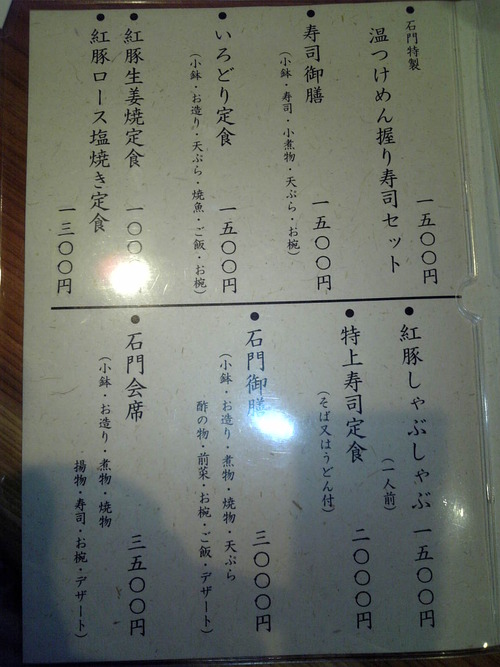 ● 石門特製
温つけめん握り寿司セット 一五〇〇円
● 寿司御膳 一五〇〇円
(小鉢・寿司・小煮物・天ぷら・お椀)
● いろどり定食 一五〇〇円
(小鉢・お造り・天ぷら・焼魚・ご飯・お椀)
● 紅豚生姜焼定食 一〇〇
● 紅豚ロース塩焼き定食 一三〇〇円
● 紅豚しゃぶしゃぶ 一五〇〇円
(一人前)
● 特上寿司定食 二〇〇〇円
(そば又はうどん付)
● 石門御膳 三〇〇〇円
(小鉢・お造り・煮物・焼物・天ぷら
酢の物・前菜・お椀・ご飯・デザート)
● 石門会席 三五〇〇円
(小鉢・お造り・煮物・焼物
揚物・寿司・お椀・デザート)